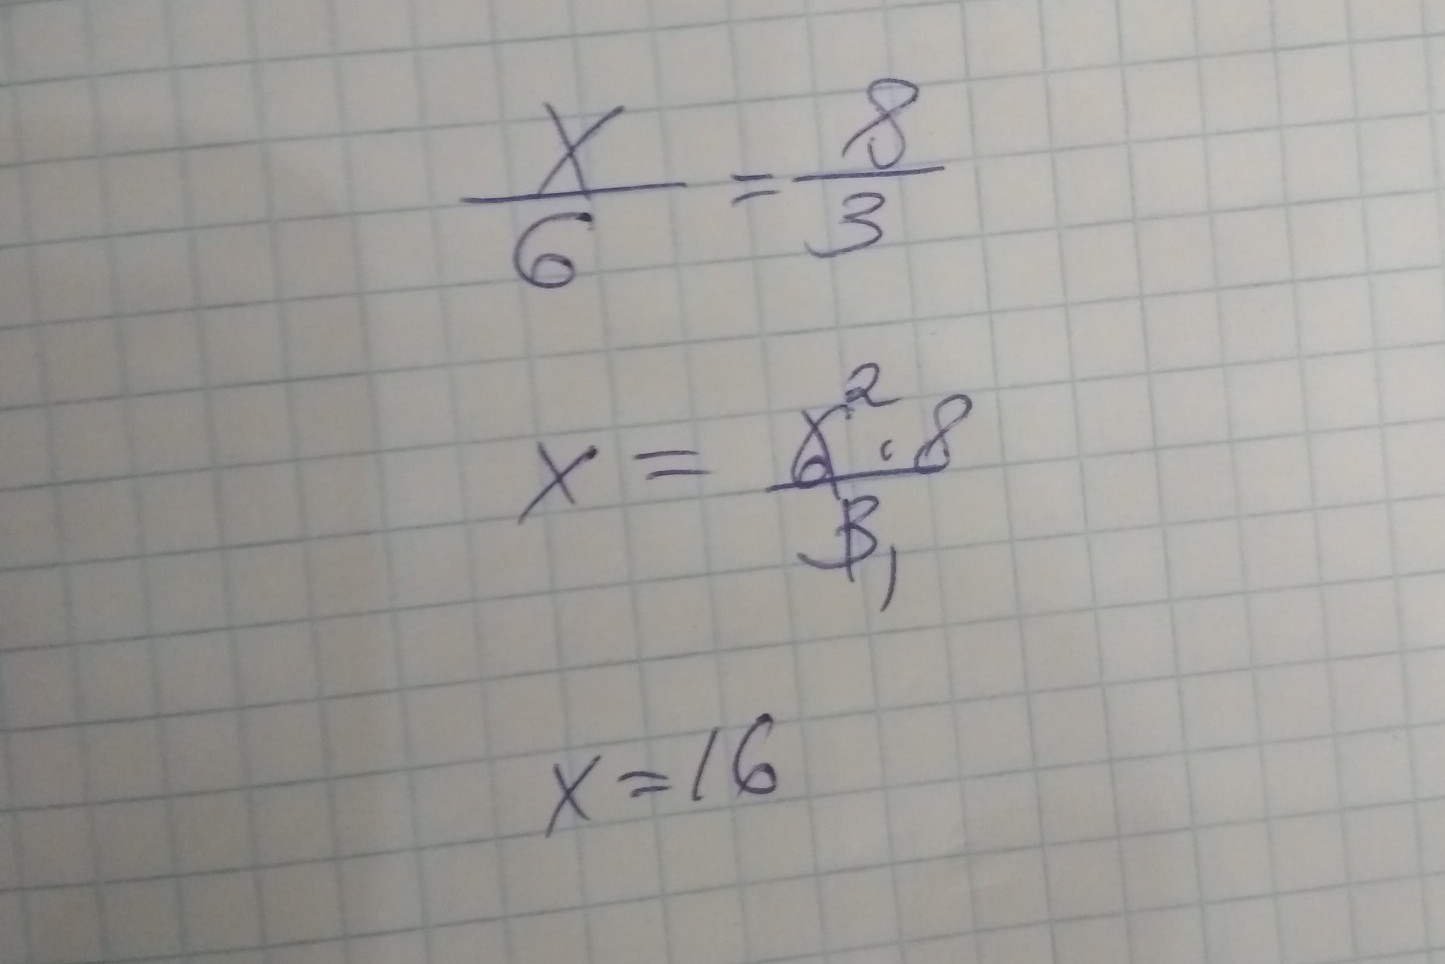 x/6 = 8/3
x = 6² · 8 / 3₁
x = 16